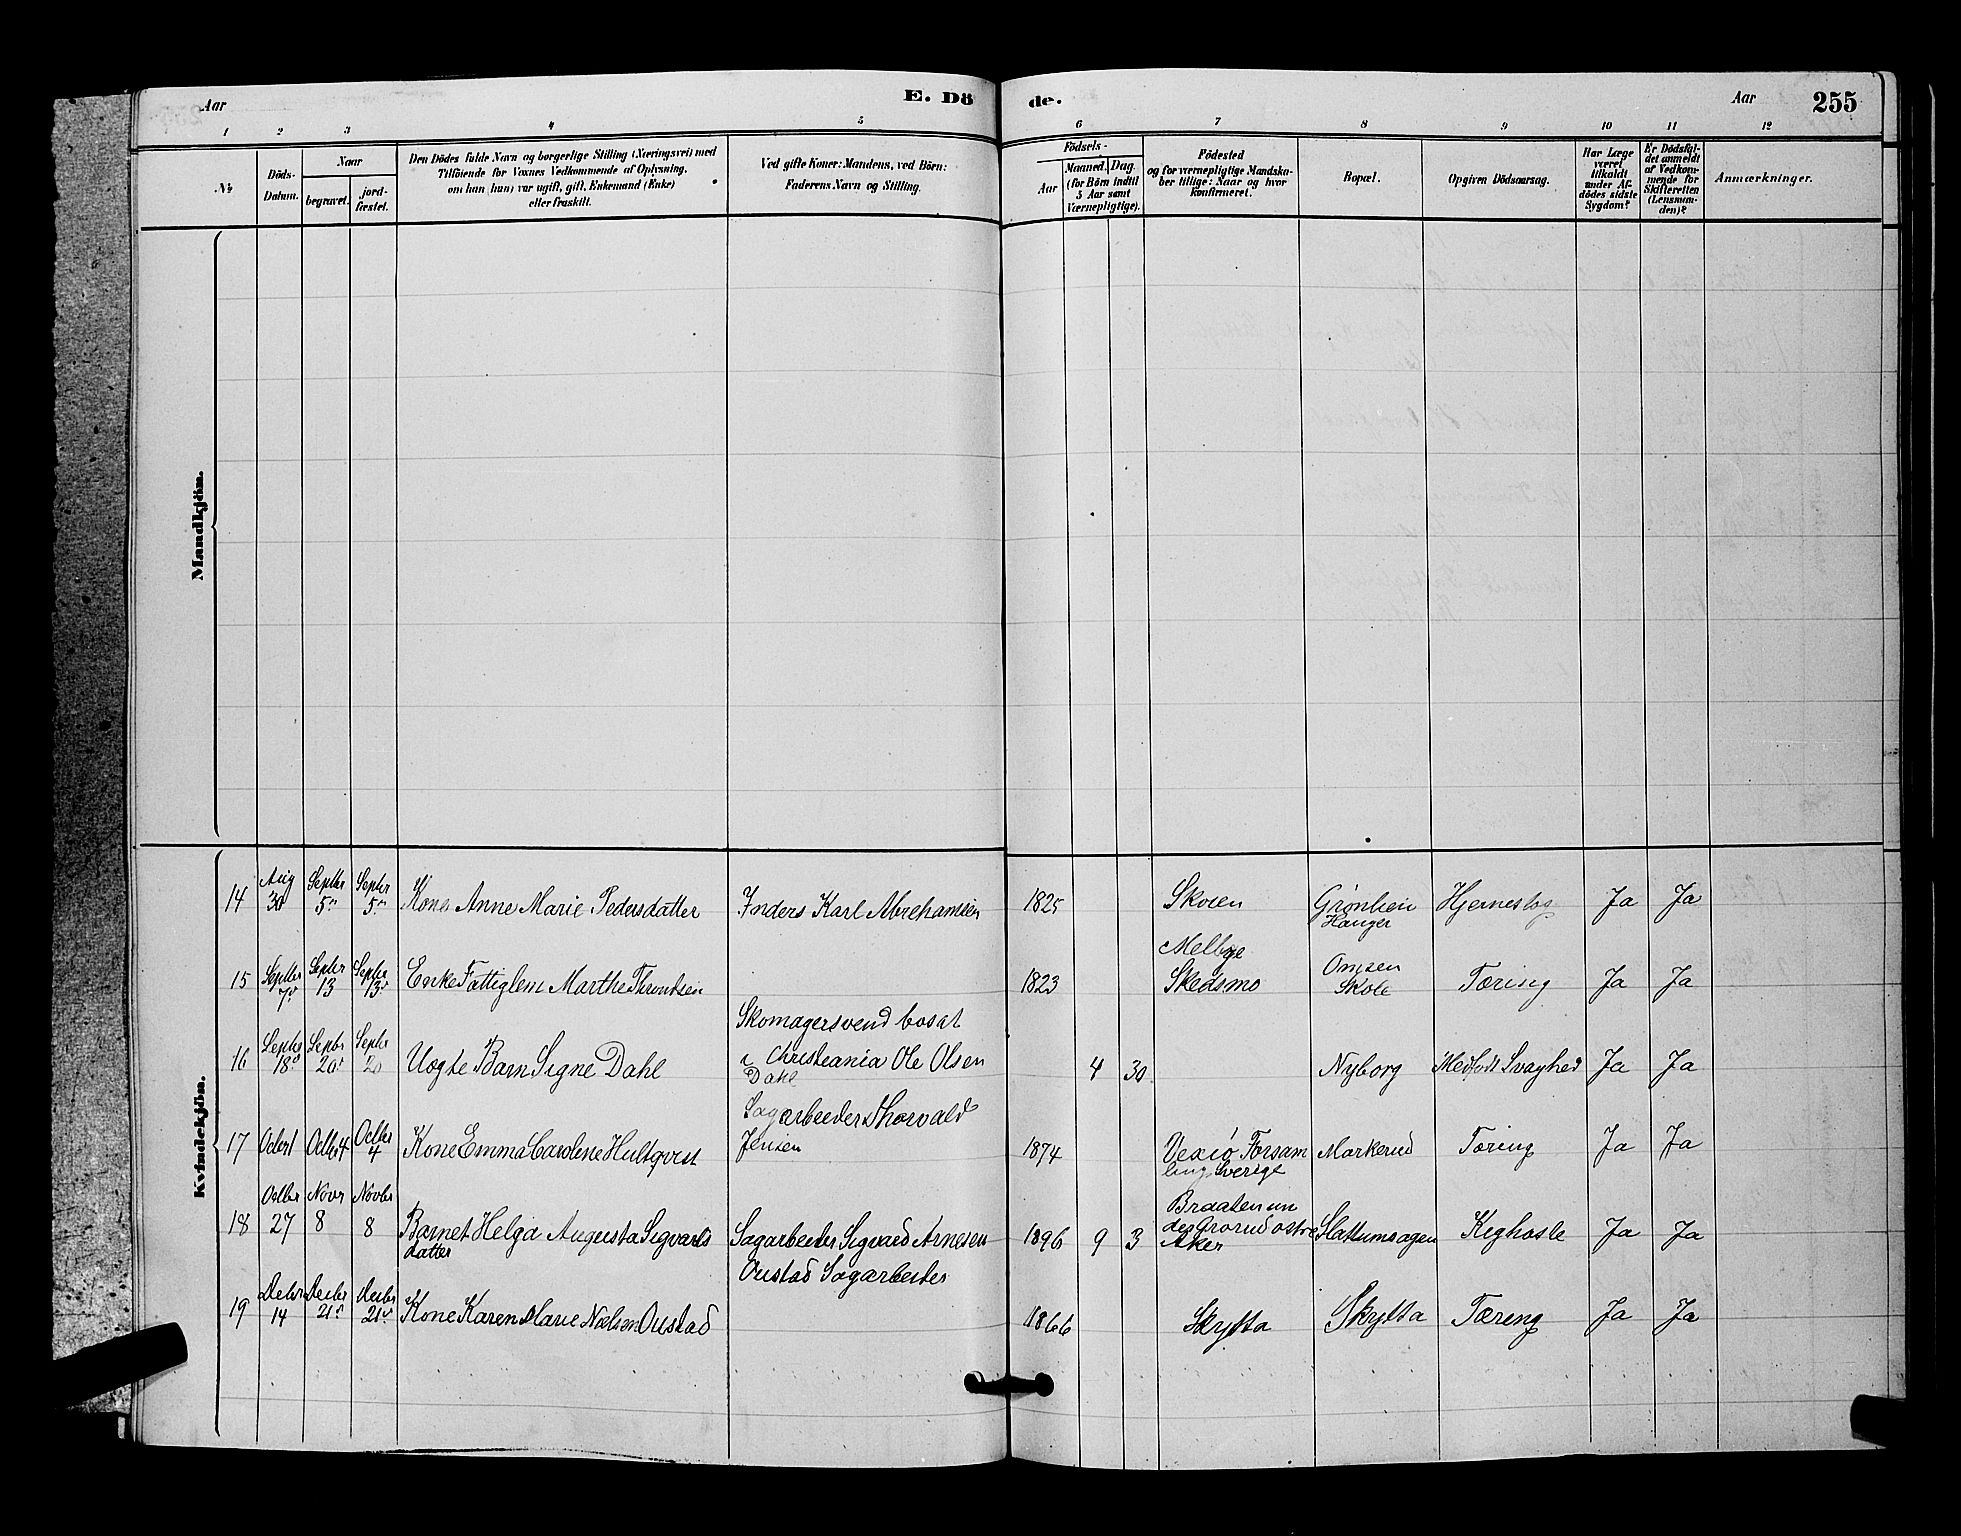 Aar E. Dö de. Aar 255
1 2 3 4 5 6 7 8 9 10 11 12
No
Döds-Datum.
Naar
begravet.
jord-fæstet.
Den Dödes fulde Navn og borgerlige Stilling (Næringsvei) med
Tilföiende for Voxnes Vedkommende af Oplysning,
om han (hun) var ugift, gift, Enkemand (Enke)
eller fraskilt.
Ved gifte Koner: Mandens, ved Börn:
Faderens Navn og Stilling.
Födsels-
Aar
Maaned. Dag.
(for Börn indtil
5 Aar samt
Værnepligtige).
Födested
og for værnepligtige Mandska-
ber tillige: Naar og hvor
konfirmeret.
Bopæl.
Opgiven Dödsaarsag.
Har Læge
været
tilkaldt
under Af-
dödes sidste
Sygdom?
Er Dödsfal-
det anmeldt
af Vedkom-
mende for
Skifteretten
(Lensman-
den)?
Anmærkninger.
Mandkjön.
Kvindekjön.
14 Aug 30 Septbr 5 Septbr 5 Kone Anne Marie Pedersdatter Anders Karl Abrehamsen 1825 Skoien Grønlien Hauger Hjerneslag Ja Ja
15 Septbr 7 Septbr 13 Septbr 13 Enke Fattiglem Marthe Throndsen 1823 Melbye Skedsmo Skole Tæring Ja Ja
16 Septbr 18 Septbr 20 Septbr 20 Uægte Barn Signe Dahl Skomagersvend bosat
i Christeania Ole Olsen
Dahl 4 30 Nyborg Medfødt Svaghed Ja Ja
17 Octbr 1 Octbr 4 Octbr 4 Kone Emma Carolene Hultqvist Sagarbeider Thorvald
Jensen 1874 Vexiö Forsam
ling Sverige Markerud Tæring Ja Ja
18 Octbr 27 Novr 8 Novbr 8 Barnet Helga Augusta Sigvards
datter Sagarbeider Sigvard Arnesen 1896 9 3 Braaten un
der Grorud østre
Aker Slattumsagen Kighoste Ja Ja
19 Decbr 14 Decbr 21 Decbr 21 Kone Karen Marie Nielsen Oustad Oustad Sagarbeider 1866 Skytta Skytta Tæreng Ja Ja